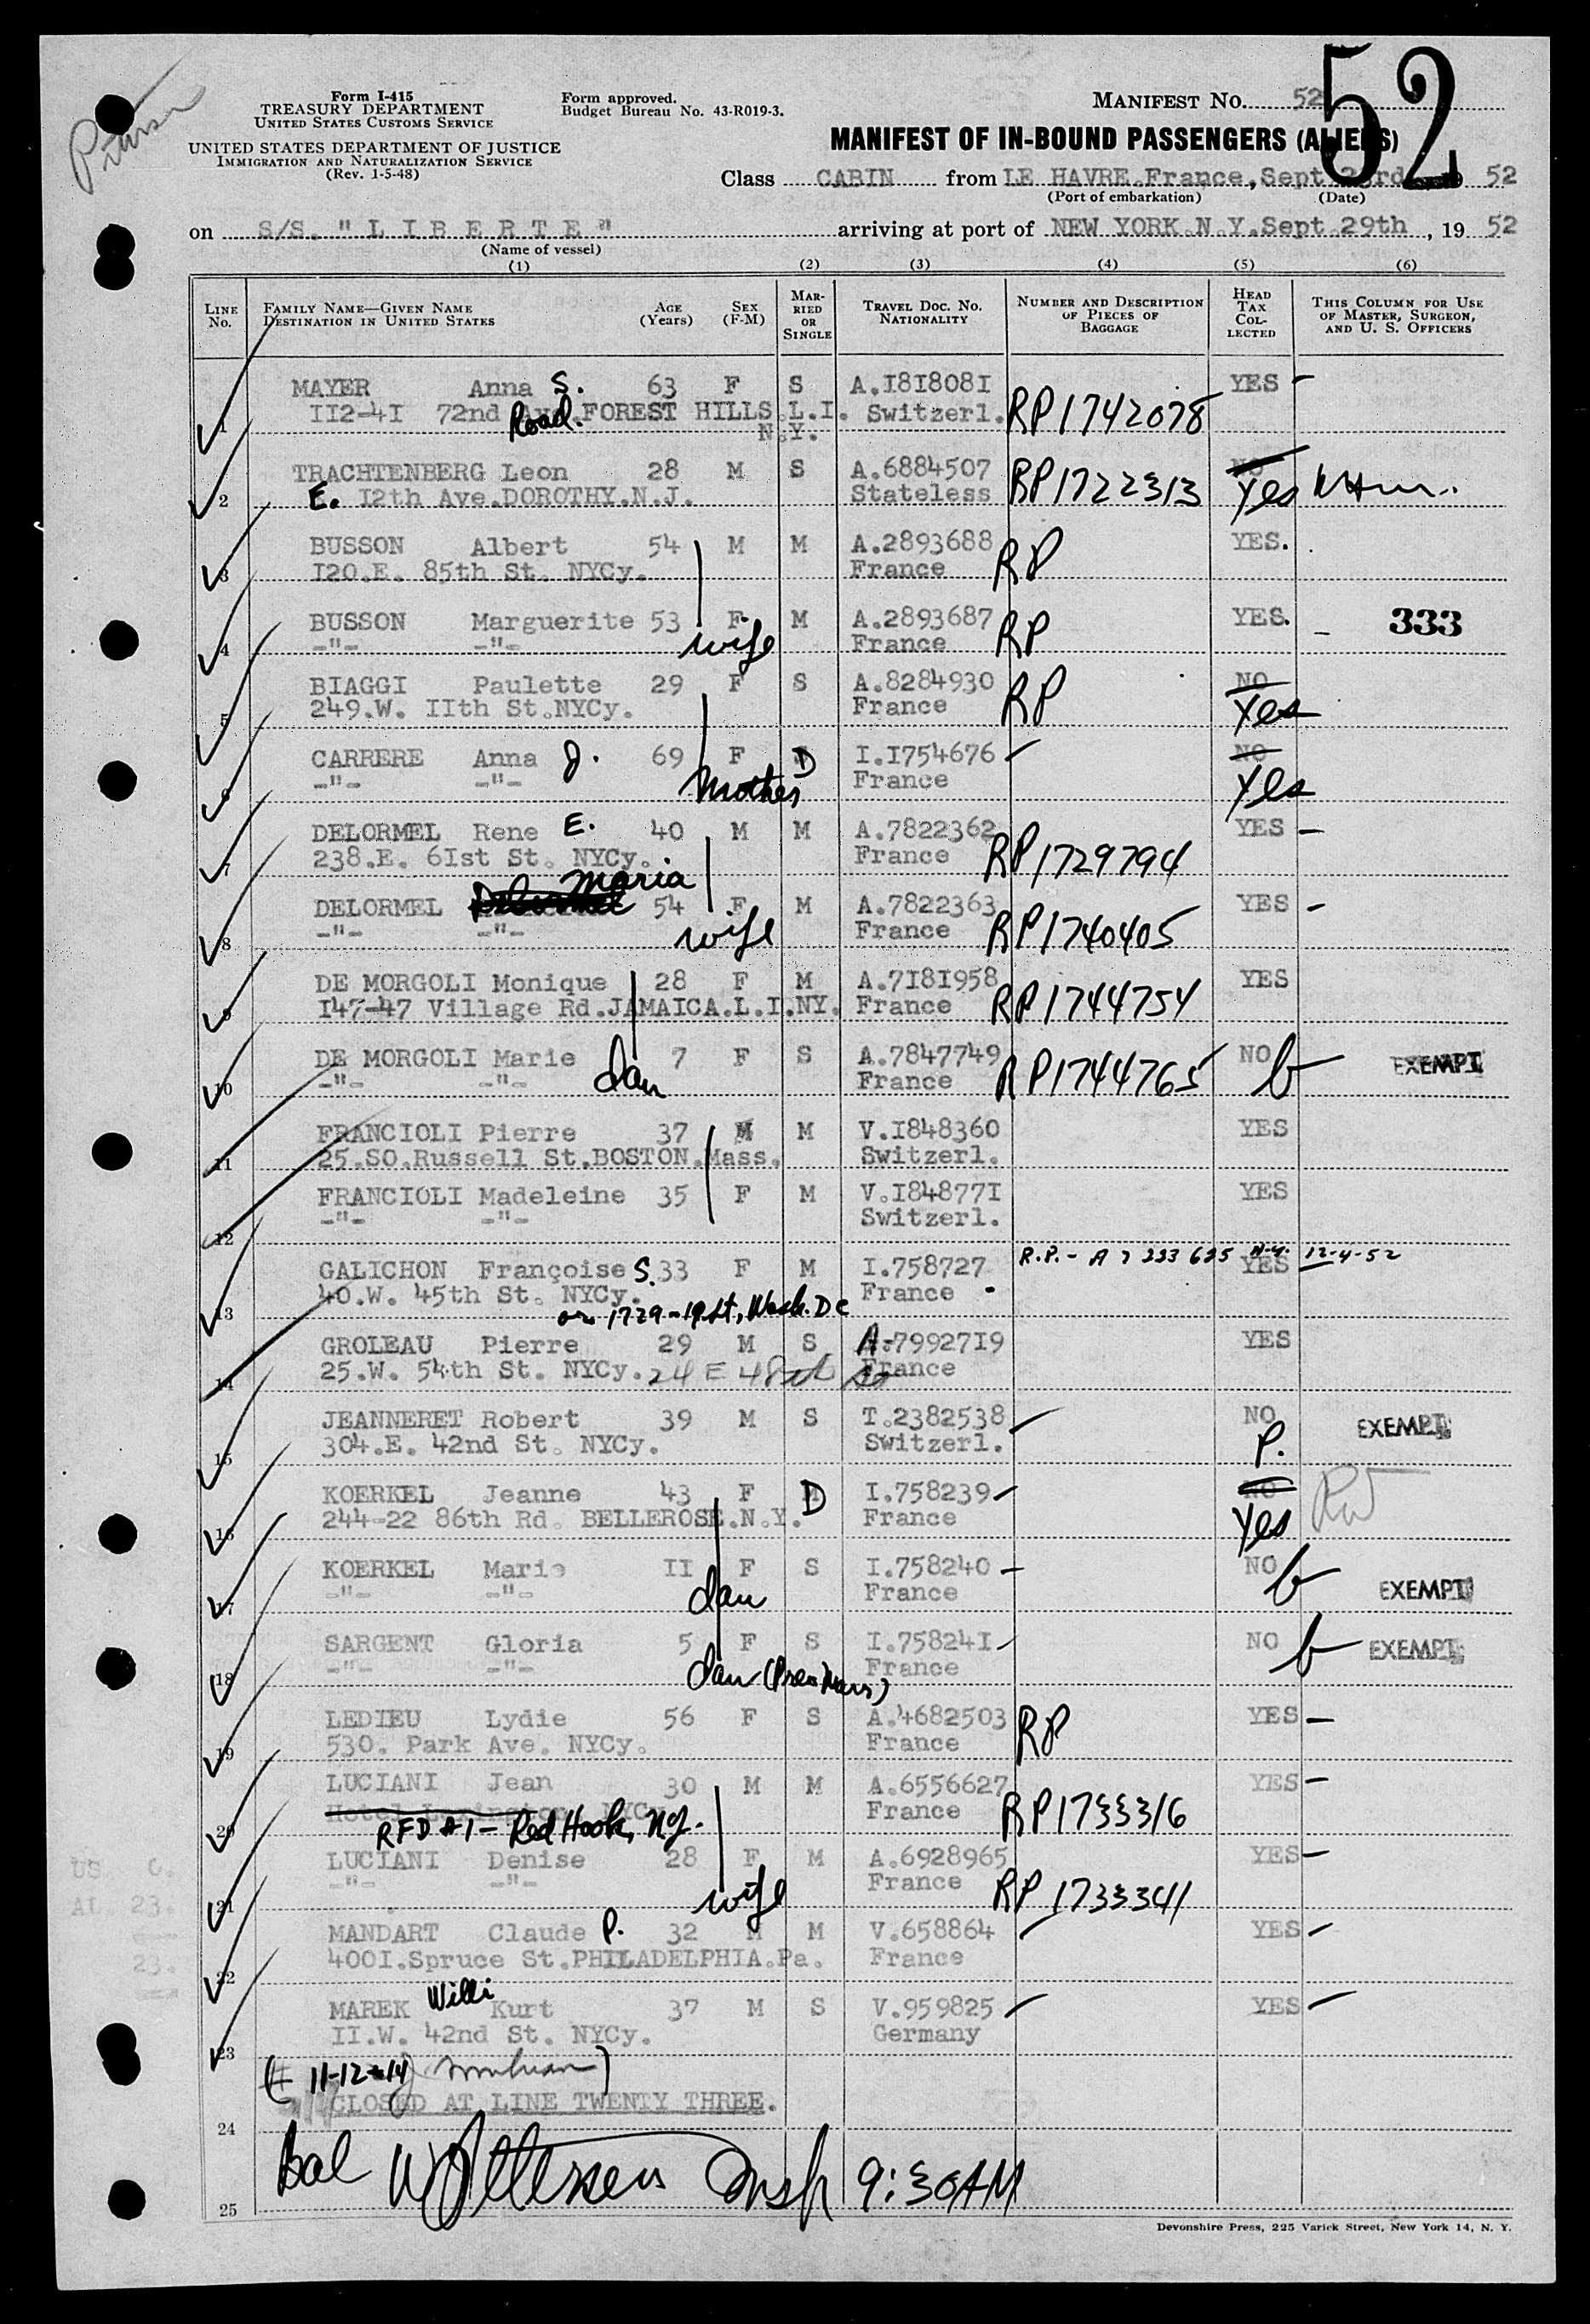 52
Form I-415
TREASURY DEPARTMENT
UNITED STATES CUSTOMS SERVICE
UNITED STATES DEPARTMENT OF JUSTICE
IMMIGRATION AND NATURALIZATION SERVICE
(Rev. 1-5-48)
Form approved.
Budget Bureau No. 43-R019-3.
MANIFEST NO. 52
MANIFEST OF IN-BOUND PASSENGERS (ALIENS)
Class CABIN from LE HAVRE.France, Sept 23rd 52
(Port of embarkation) (Date)
on S/S. "LIBERTE" arriving at port of NEW YORK.N.Y.Sept.29th, 19 52
(Name of vessel)
(1) (2) (3) (4) (5) (6)
LINE No. FAMILY NAME—GIVEN NAME DESTINATION IN UNITED STATES AGE (Years) SEX (F-M) MARRIED OR SINGLE TRAVEL DOC. NO. NATIONALITY NUMBER AND DESCRIPTION OF PIECES OF BAGGAGE HEAD TAX COLLECTED THIS COLUMN FOR USE OF MASTER, SURGEON, AND U. S. OFFICERS
MAYER Anna S. 63 F S A.I8I808I YES –
1 II2-4I 72nd Road. FOREST HILLS.L.I. Switzerl. RP1742078
N.Y.
TRACHTENBERG Leon 28 M S A.6884507 RP1722313 NO
2 E. I2th Ave.DOROTHY.N.J. Stateless Yes
BUSSON Albert 54 M M A.2893688 RP YES.
3 I20.E. 85th St. NYCy. France
BUSSON Marguerite 53 F M A.2893687 RP YES. – 333
4 -"- -"- wife France
BIAGGI Paulette 29 F S A.8284930 RP NO
5 249.W. IIth St.NYCy. France Yes
CARRERE Anna J. 69 F D I.I754676 NO
6 -"- -"- Mother France Yes
DELORMEL Rene E. 40 M M A.7822362 YES –
7 238.E. 6Ist St. NYCy. France RP1729794
Maria
DELORMEL 54 F M A.7822363 YES –
8 -"- -"- wife France RP1740405
DE MORGOLI Monique 28 F M A.7I8I958 YES
9 I47-47 Village Rd.JAMAICA.L.I.NY. France RP1744754
DE MORGOLI Marie 7 F S A.7847749 NO b EXEMPT
10 -"- -"- dau France RP1744765
FRANCIOLI Pierre 37 M M V.I848360 YES
11 25.SO.Russell St.BOSTON.Mass. Switzerl.
FRANCIOLI Madeleine 35 F M V.I84877I YES
12 -"- -"- Switzerl.
R.P.- A7333625 N.Y. 12-4-52
GALICHON Françoise S. 33 F M I.758727 YES
13 40.W. 45th St. NYCy. France
or 1729-19 St, Wash. DC
GROLEAU Pierre 29 M S A-7992719 YES
14 25.W. 54th St. NYCy. 24 E 48th St France
JEANNERET Robert 39 M S T.2382538 NO EXEMPT
15 304.E. 42nd St. NYCy. Switzerl. P.
KOERKEL Jeanne 43 F D I.758239 NO
16 244-22 86th Rd. BELLEROSE.N.Y. France Yes
KOERKEL Marie II F S I.758240 NO b EXEMPT
17 -"- -"- dau France
SARGENT Gloria 5 F S I.75824I NO b EXEMPT
18 -"- -"- dau France
LEDIEU Lydie 56 F S A.4682503 RP YES –
19 530. Park Ave. NYCy. France
LUCIANI Jean 30 M M A.6556627 YES –
20 Hotel Lexington NYCy France RP1733316
RFD #1 - Red Hook, NY.
LUCIANI Denise 28 F M A.6928965 YES –
21 -"- -"- wife France RP 1733341
MANDART Claude P. 32 M M V.658864 YES –
22 400I.Spruce St.PHILADELPHIA.Pa. France
MAREK Willi Kurt 37 M S V.959825 YES –
23 II.W. 42nd St. NYCy. Germany
US 0.
AL. 23.
23.
11-12-14
CLOSED AT LINE TWENTY THREE.
24
Bal Insp 9:30AM
25
Devonshire Press, 225 Varick Street, New York 14, N. Y.